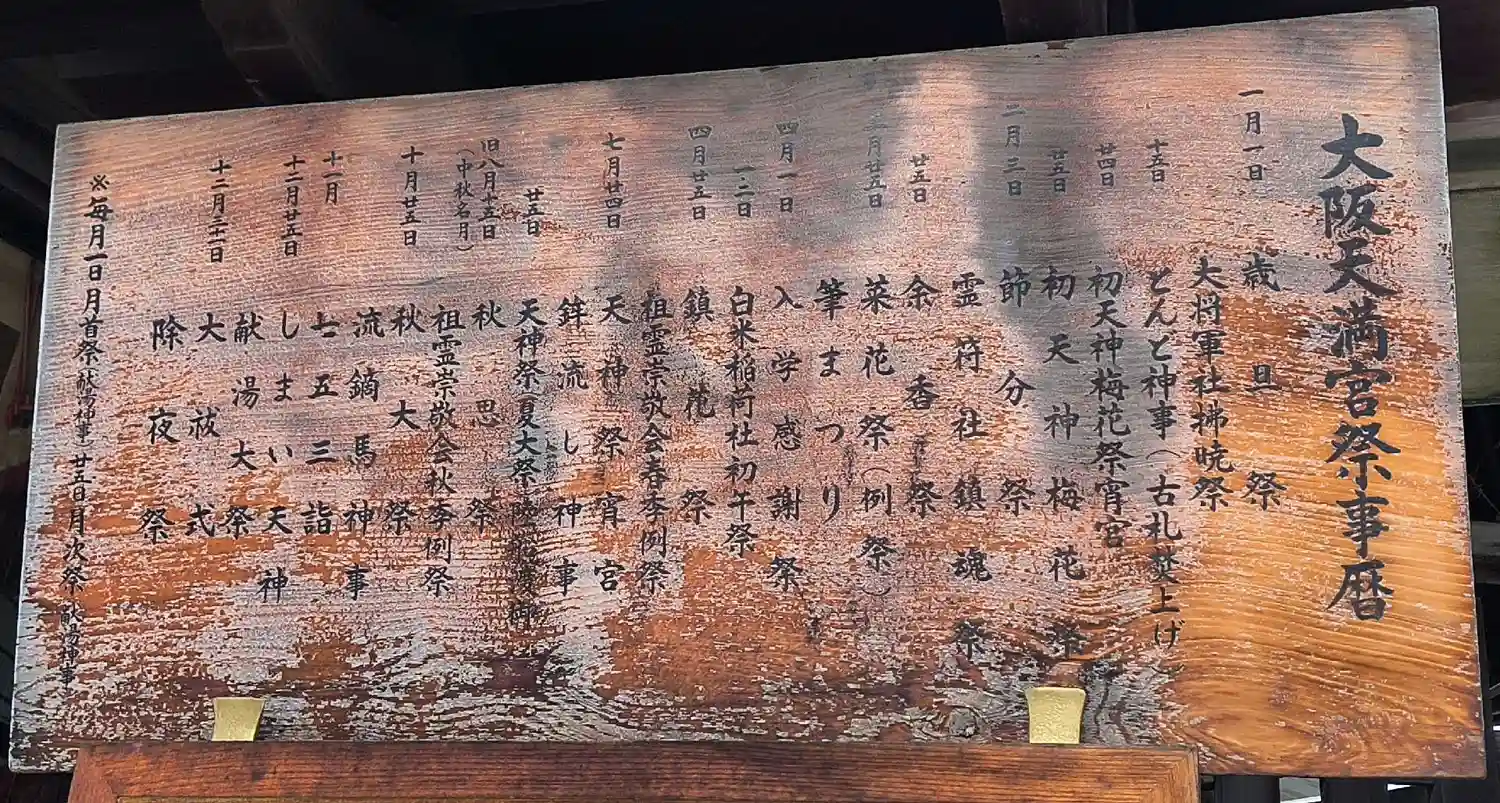 大阪天満宮祭事暦
一月一日 歳旦祭
大将軍社拂暁祭
十五日 とんど神事(古札焚上げ
廿四日 初天神梅花祭宵宮
廿五日 初天神梅花祭
二月三日 節分祭
霊符社鎮魂祭
廿五日 余香祭
三月廿五日 菜花祭(例祭)
筆まつり
四月一日 入学感謝祭
一、二日 白米稲荷社初午祭
四月廿五日 鎮花祭
祖霊崇敬会春季例祭
七月廿四日 天神祭宵宮
鉾流し神事
廿五日 天神祭(夏大祭)
旧八月十五日(中秋名月) 秋思祭
祖霊崇敬会秋季例祭
十月廿五日 秋大祭
流鏑馬神事
十一月 七五三詣
十二月廿五日 しまい天神
献湯大祭
十二月三十一日 大祓式
除夜祭
※毎月一日月首祭(献湯神事)廿五日月次祭(献湯神事)